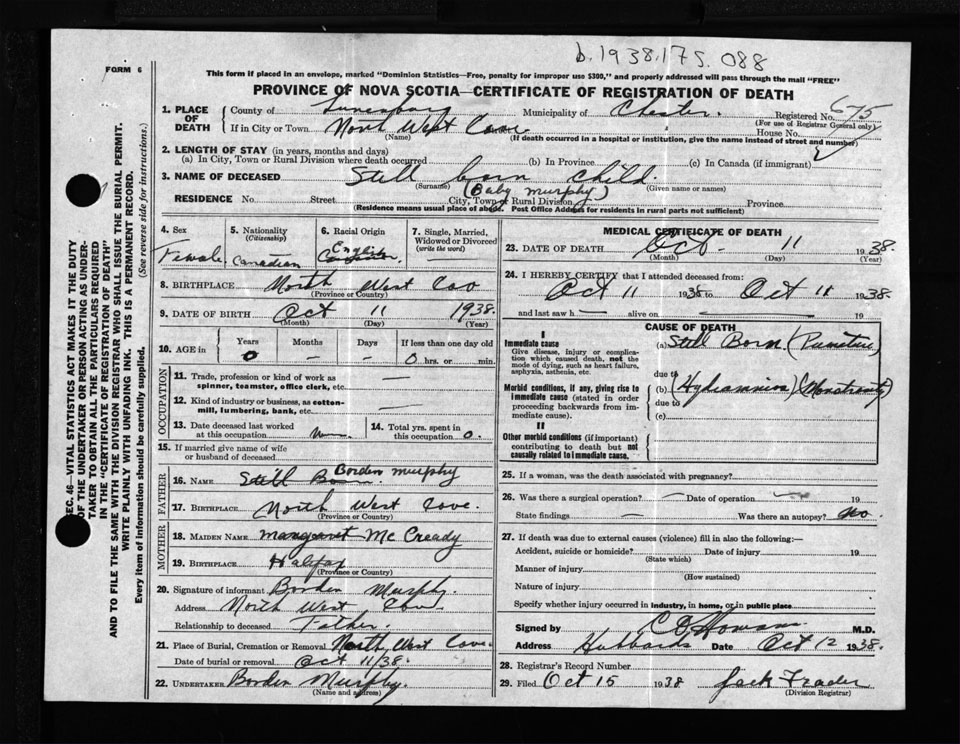 b.1938.175.088
FORM 6
This form if placed in an envelope, marked "Dominion Statistics—Free, penalty for improper use $300," and properly addressed will pass through the mail "FREE"
PROVINCE OF NOVA SCOTIA—CERTIFICATE OF REGISTRATION OF DEATH
SEC. 46—VITAL STATISTICS ACT MAKES IT THE DUTY
OF THE UNDERTAKER OR PERSON ACTING AS UNDER-
TAKER TO OBTAIN ALL THE PARTICULARS REQUIRED
IN THE "CERTIFICATE OF REGISTRATION OF DEATH"
AND TO FILE THE SAME WITH THE DIVISION REGISTRAR WHO SHALL ISSUE THE BURIAL PERMIT.
WRITE PLAINLY WITH UNFADING INK. THIS IS A PERMANENT RECORD.
Every item of information should be carefully supplied. (See reverse side for instructions.)
1. PLACE OF DEATH
County of Lunenburg Municipality of Chester Registered No. 675
(For use of Registrar General only)
If in City or Town North West Cove House No.
(Name) (If death occurred in a hospital or institution, give the name instead of street and number)
2. LENGTH OF STAY (in years, months and days)
(a) In City, Town or Rural Division where death occurred (b) In Province (c) In Canada (if immigrant)
3. NAME OF DECEASED Still born child.
(Surname) (Baby Murphy) (Given name or names)
RESIDENCE No. Street City, Town or Rural Division Province
(Residence means usual place of abode. Post Office Address for residents in rural parts not sufficient)
4. Sex
Female
5. Nationality
(Citizenship)
Canadian
6. Racial Origin
English
7. Single, Married,
Widowed or Divorced
(write the word)
—
8. BIRTHPLACE North West Cov
(Province or Country)
9. DATE OF BIRTH Oct 11 1938.
(Month) (Day) (Year)
10. AGE in Years Months Days If less than one day old
0 — — 0 hrs. or min.
OCCUPATION
11. Trade, profession or kind of work as
spinner, teamster, office clerk, etc. —
12. Kind of industry or business, as cotten-
mill, lumbering, bank, etc. —
13. Date deceased last worked
at this occupation
14. Total yrs. spent in
this occupation 0.
15. If married give name of wife
or husband of deceased
FATHER
16. NAME Still Born. Borden Murphy
17. BIRTHPLACE North West Cove.
(Province or Country)
MOTHER
18. MAIDEN NAME Margaret Mc Cready
19. BIRTHPLACE Halifax
(Province or Country)
20. Signature of informant Borden Murphy.
Address North West Cov
Relationship to deceased Father.
21. Place of Burial, Cremation or Removal North West Cove.
Date of burial or removal Oct 11/38.
22. UNDERTAKER Borden Murphy.
(Name and address)
MEDICAL CERTIFICATE OF DEATH
23. DATE OF DEATH Oct 11 1938.
(Month) (Day) (Year)
24. I HEREBY CERTIFY that I attended deceased from:
Oct 11 1938 to Oct 11 1938.
and last saw h — alive on — 19
CAUSE OF DEATH
I
Immediate cause
Give disease, injury or complica-
tion which caused death, not the
mode of dying, such as heart failure,
asphyxia, asthenia, etc.
(a) Still Born
due to
Morbid conditions, if any, giving rise to
immediate cause (stated in order
proceeding backwards from im-
mediate cause).
(b)
due to
(c)
II
Other morbid conditions (if important)
contributing to death but not
causally related to immediate cause.
25. If a woman, was the death associated with pregnancy?
26. Was there a surgical operation? — Date of operation — 19
State findings — Was there an autopsy? No
27. If death was due to external causes (violence) fill in also the following:—
Accident, suicide or homicide? Date of injury 19
(State which)
Manner of injury
(How sustained)
Nature of injury
Specify whether injury occurred in industry, in home, or in public place
Signed by M.D.
Address Hubbards Date Oct 12 1938.
28. Registrar's Record Number
29. Filed Oct 15 1938 Jack Frader
(Division Registrar)